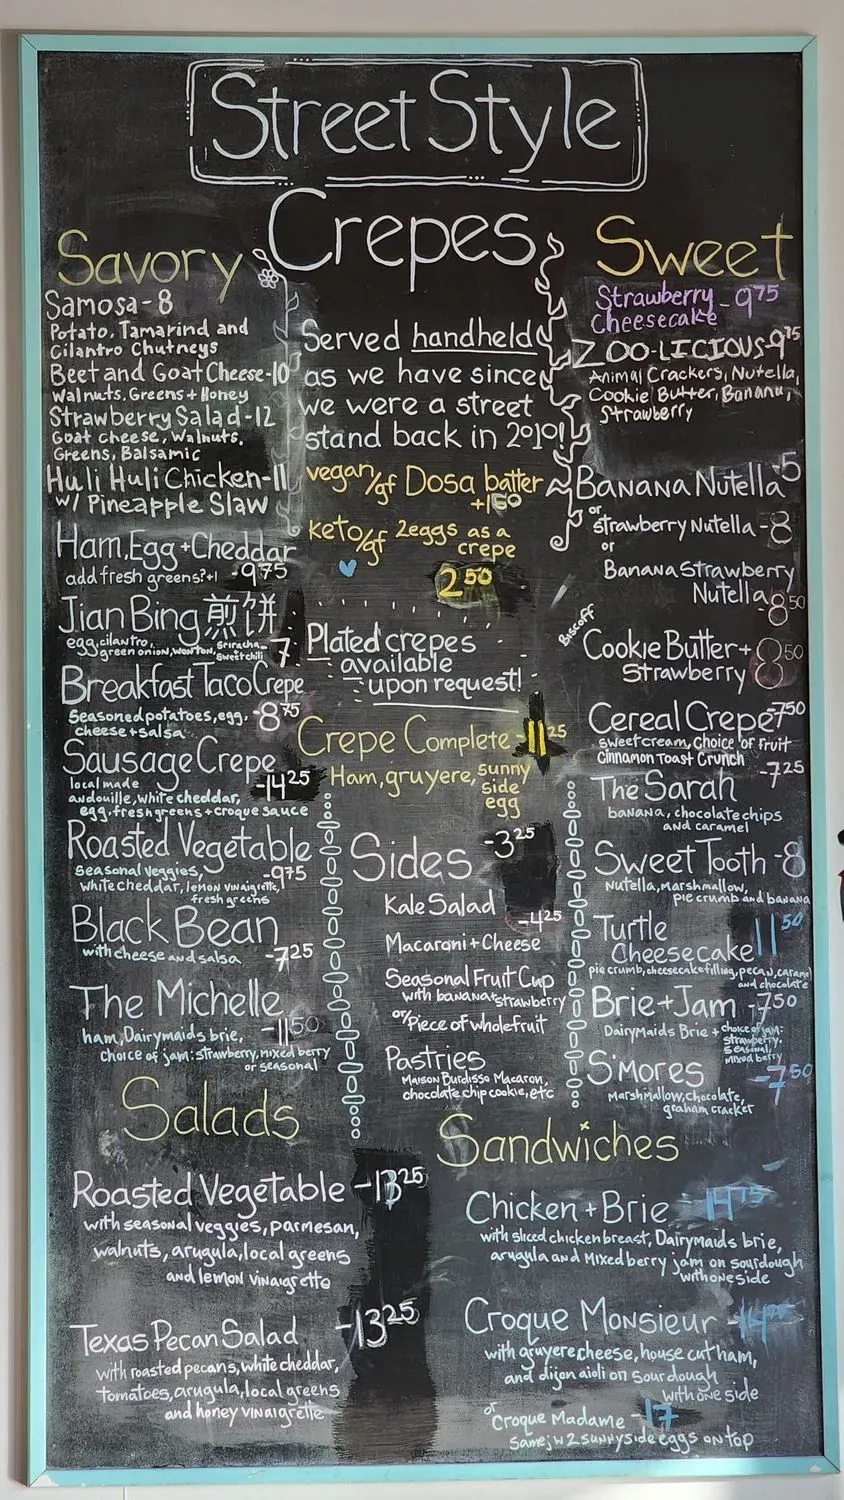 Street Style
Crepes
Savory
Samosa - 8
Potato, Tamarind and
Cilantro Chutneys
Beet and Goat Cheese - 10
Walnuts, Greens + Honey
Strawberry Salad - 12
Goat cheese, Walnuts,
Greens, Balsamic
Huli Huli Chicken - 11
w/ Pineapple Slaw
Ham, Egg + Cheddar
add fresh greens? +1 - 9 75
Jian Bing 煎饼
egg, cilantro,
green onion, wonton, sriracha, sweet chili - 7
Breakfast Taco Crepe
seasoned potatoes, egg, - 8 75
cheese + salsa
Sausage Crepe
local made - 14 25
andouille, white cheddar,
egg, fresh greens + croque sauce
Roasted Vegetable
seasonal veggies, - 9 75
white cheddar, lemon vinaigrette,
fresh greens
Black Bean
with cheese and salsa - 7 25
The Michelle
ham, Dairymaids brie, - 11 50
choice of jam: strawberry, mixed berry
or seasonal
Served handheld
as we have since
we were a street
stand back in 2010!
vegan/gf Dosa batter
+1 50
keto/gf 2 eggs as a
crepe
2 50
Plated crepes
available
upon request!
Crepe Complete - 11 25
Ham, gruyere, sunny
side
egg
Sides
- 3 25
Kale Salad
- 4 25
Macaroni + Cheese
Seasonal Fruit Cup
with banana + strawberry
or/ Piece of whole fruit
Pastries
Maison Burdisso Macaron,
chocolate chip cookie, etc
Sweet
Strawberry - 9 75
Cheesecake
ZOO-LICIOUS - 9 75
Animal Crackers, Nutella,
Cookie Butter, Banana,
Strawberry
Banana Nutella - 5
or
strawberry Nutella - 8
or
Banana Strawberry
Nutella - 8 50
Biscoff
Cookie Butter +
Strawberry 8 50
Cereal Crepe - 7 50
sweet cream, choice of fruit
Cinnamon Toast Crunch
The Sarah - 7 25
banana, chocolate chips
and caramel
Sweet Tooth - 8
Nutella, marshmallow,
pie crumb and banana
Turtle
Cheesecake 11 50
pie crumb, cheesecake filling, pecan, caramel
and chocolate
Brie + Jam - 7 50
Dairymaids Brie + choice of jam:
strawberry,
seasonal,
mixed berry
S'mores - 7 50
Marshmallow, chocolate,
graham cracker
Salads
Roasted Vegetable - 13 25
with seasonal veggies, parmesan,
walnuts, arugula, local greens
and lemon vinaigrette
Texas Pecan Salad - 13 25
with roasted pecans, white cheddar,
tomatoes, arugula, local greens
and honey vinaigrette
Sandwiches
Chicken + Brie - 14 75
with sliced chicken breast, Dairymaids brie,
arugula and mixed berry jam on sourdough
with one side
Croque Monsieur - 14 75
with gruyere cheese, house cut ham,
and dijon aioli on sourdough
with one side
or
Croque Madame - 17
same, w 2 sunny side eggs on top